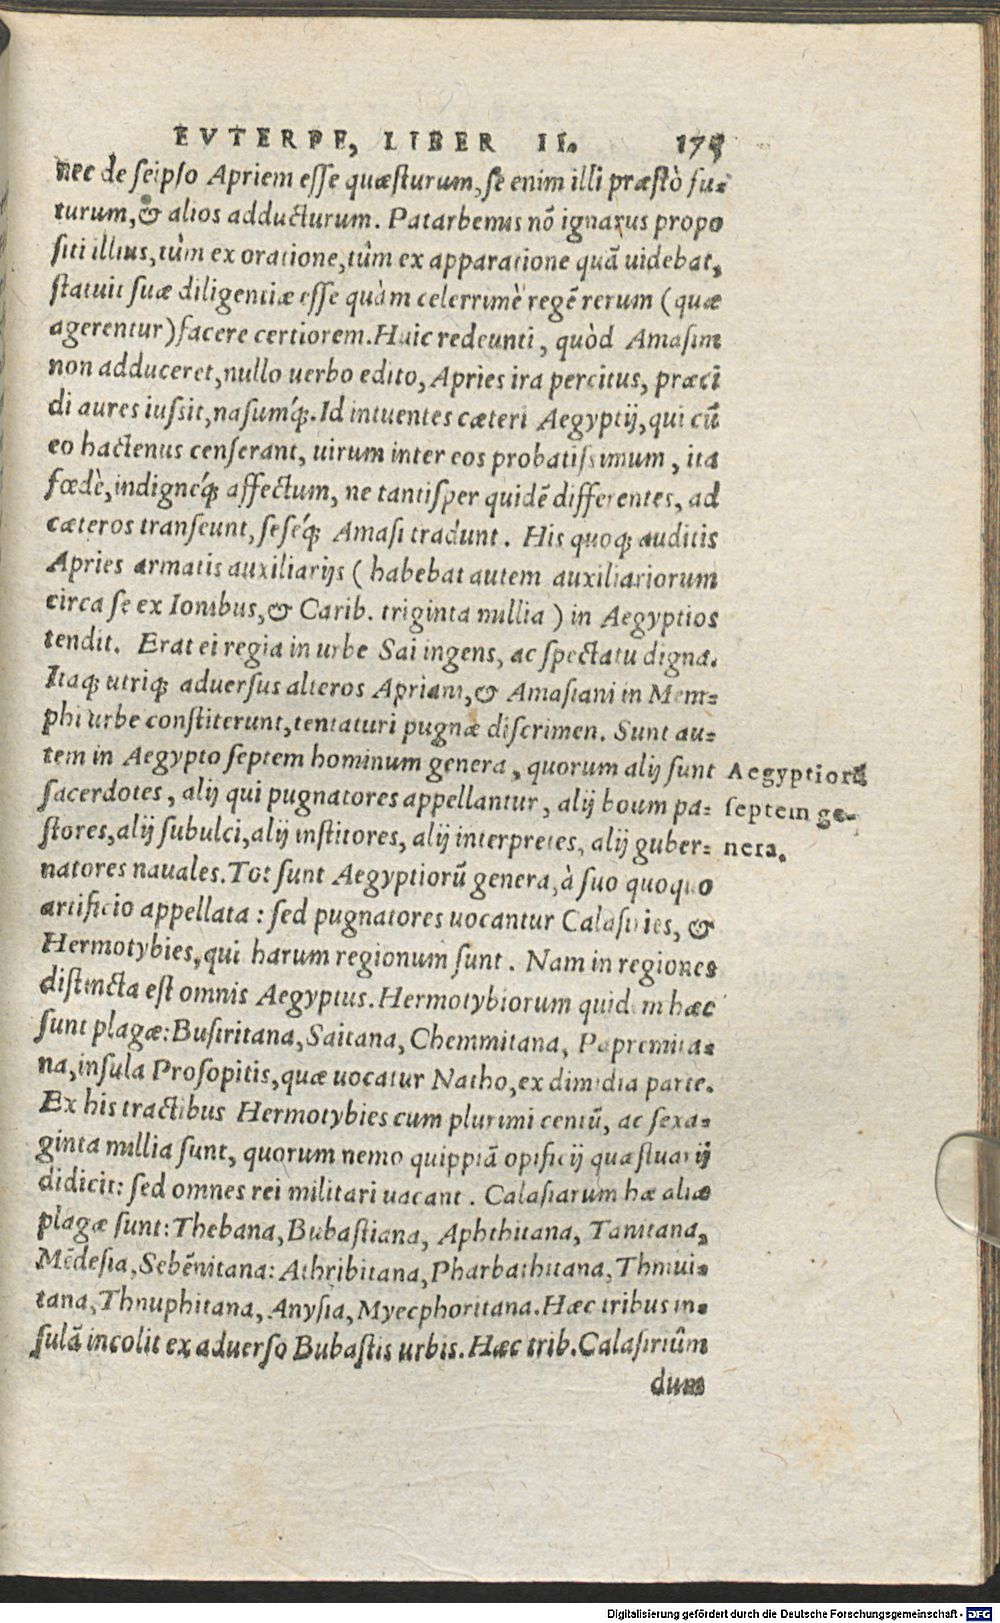 EVTERPE, LIBER II. 175
nec de seipso Apriem esse quæsturum, se enim illi præstò fu-
turum, & alios adducturum. Patarbenus nõ ignarus propo
siti illius, tùm ex oratione, tûm ex apparatione quã uidebat,
statuit suæ diligentiæ esse quàm celerrimè regẽ rerum (quæ
agerentur) facere certiorem. Huic redeunti, quòd Amasim
non adduceret, nullo uerbo edito, Apries ira percitus, præci
di aures iussit, nasumq́;. Id intuentes cæteri Aegyptij, qui cũ
eo hactenus censerant, uirum inter eos probatissimum, ita
fœdè, indigneq́; affectum, ne tantisper quidẽ differentes, ad
cæteros transeunt, seseq́; Amasi tradunt. His quoq; auditis
Apries armatis auxiliarijs ( habebat autem auxiliariorum
circa se ex Ionibus, & Carib. triginta millia ) in Aegyptios
tendit. Erat ei regia in urbe Sai ingens, ac spectatu digna.
Itaq; utriq; aduersus alteros Apriani, & Amasiani in Mem-
phi urbe constiterunt, tentaturi pugnæ discrimen. Sunt au-
tem in Aegypto septem hominum genera, quorum alij sunt
sacerdotes, alij qui pugnatores appellantur, alij boum pa-
stores, alij subulci, alij institores, alij interpretes, alij guber-
natores nauales. Tot sunt Aegyptiorũ genera, à suo quoquo
artificio appellata : sed pugnatores uocantur Calasiries, &
Hermotybies, qui harum regionum sunt. Nam in regiones
distincta est omnis Aegyptus. Hermotybiorum quidem hæc
sunt plagæ: Busiritana, Saitana, Chemmitana, Papremita-
na, insula Prosopitis, quæ uocatur Natho, ex dimidia parte.
Ex his tractibus Hermotybies cum plurimi centũ, ac sexa-
ginta millia sunt, quorum nemo quippiã opificij quæstuarij
didicit: sed omnes rei militari uacant. Calasiarum hæ aliæ
plagæ sunt: Thebana, Bubastiana, Aphthitana, Tanitana,
Mẽdesia, Sebẽnitana: Athribitana, Pharbathitana, Thmui-
tana, Thnuphitana, Anysia, Myecphoritana. Hæc tribus in-
sulã incolit ex aduerso Bubastis urbis. Hæc trib. Calasiriûm
dum
Aegyptiorũ
septem ge-
nera.
Digitalisierung gefördert durch die Deutsche Forschungsgemeinschaft - DFG